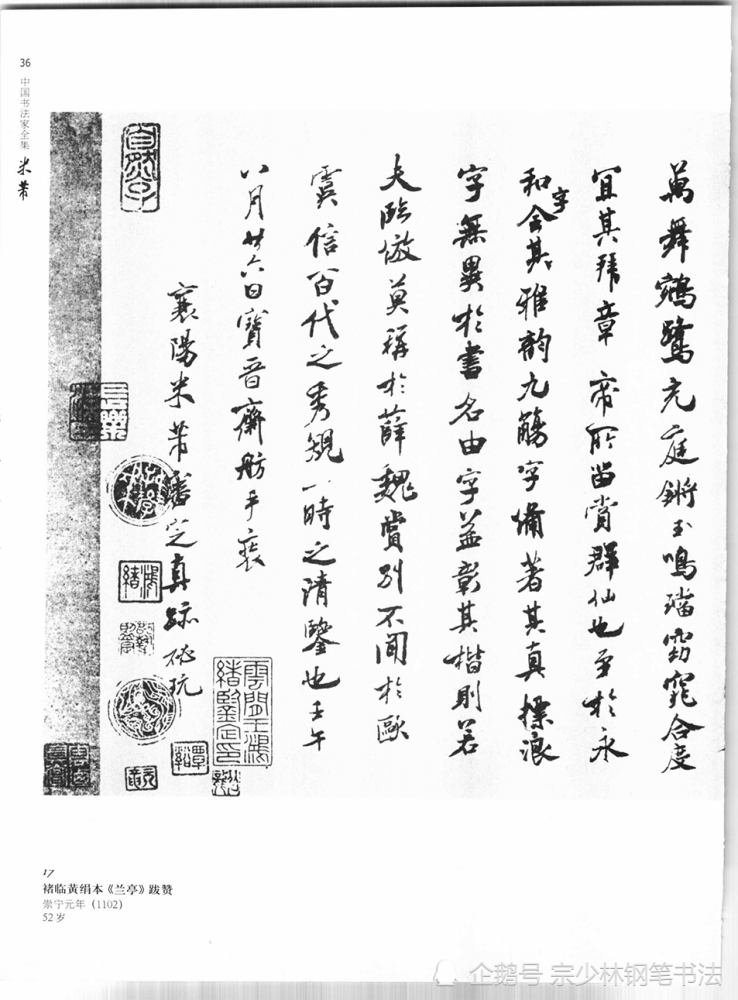 36
中国书法家全集
米芾
萬舞鵷鷺充庭鏘玉鳴璫窈窕合度
宜其拜章帝所留賞群仙也至於永
和字合其雅韵九觴字備著其真摽浪
字無異於書名由字益彰其楷則若
夫臨倣莫稱於薛魏賞別不聞於歐
虞信百代之秀規一時之清鑒也壬午
八月廿六日寶晉齋舫手裝
襄陽米芾審定真跡秘玩
雲間王鴻緒鑒定印
17
褚临黄绢本《兰亭》跋赞
崇宁元年（1102）
52岁
企鹅号 宗少林钢笔书法